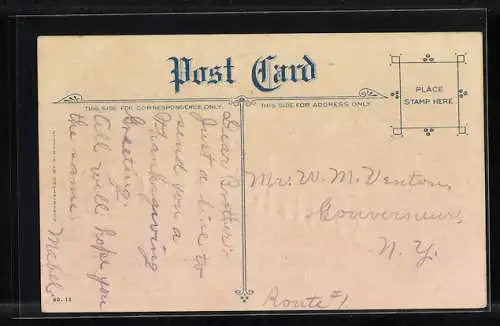 Post Card
THIS SIDE FOR CORRESPONDENCE ONLY.
THIS SIDE FOR ADDRESS ONLY
PLACE
STAMP HERE
Dear Brother:
Just a line to
send you a
Thanksgiving
Greeting.
All well hope you
the same.
Mabel.
Mr. W. M. Venton,
Gouverneur,
N. Y.
Route #1.
NO. 11